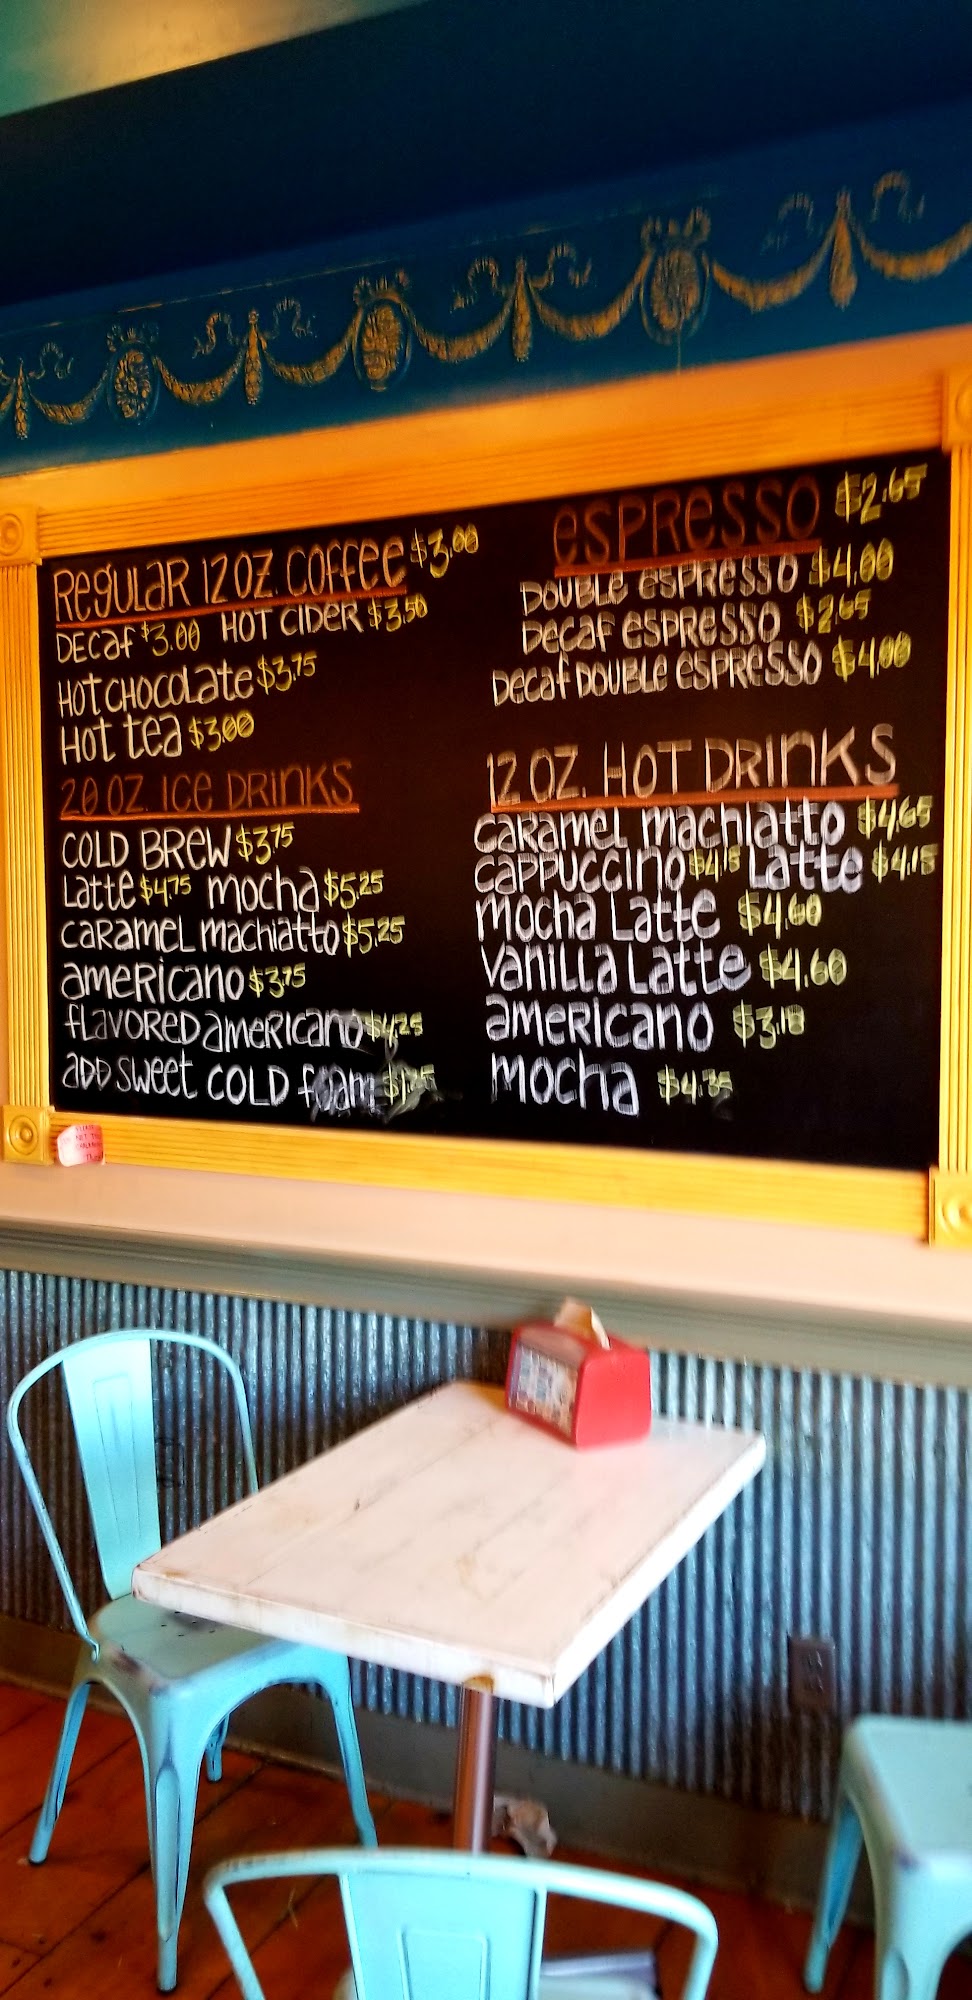 Regular 12 oz. Coffee $3.00
Decaf $3.00 Hot Cider $3.50
Hot Chocolate $3.75
Hot Tea $3.00
20 oz. Ice Drinks
Cold Brew $3.75
Latte $4.75 Mocha $5.25
Caramel Machiatto $5.25
Americano $3.75
Flavored Americano $4.25
Add Sweet Cold Foam $1.25
Espresso $2.65
Double Espresso $4.00
Decaf Espresso $2.65
Decaf Double Espresso $4.00
12 oz. Hot Drinks
Caramel Machiatto $4.65
Cappuccino $4.15 Latte $4.15
Mocha Latte $4.60
Vanilla Latte $4.60
Americano $3.18
Mocha $4.35